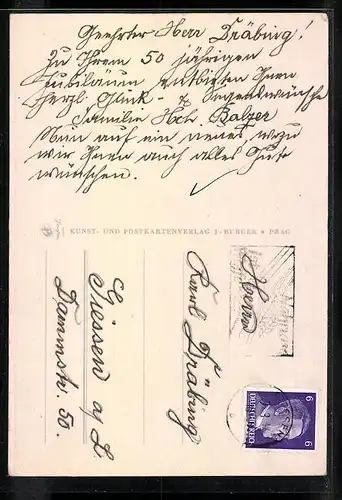 Geehrter Herr Dräbing!
Zu Ihrem 50 jährigen
Jubiläum entbieten Ihnen
Herzl. Glück- & Segenswünsche
Familie Hch. Balzer
Nun auf ein neues, wozu
wir Ihnen auch alles Gute
wünschen.
KUNST- UND POSTKARTENVERLAG I. BURGER * PRAG
Herrn
Karl Dräbing
Giessen a/L
Dammstr. 50.
6 DEUTSCHES REICH 6